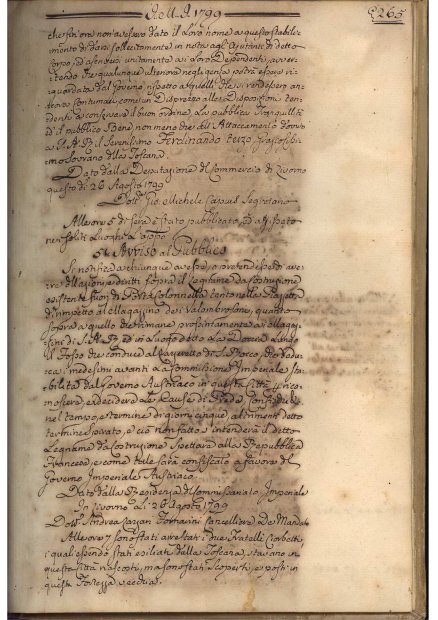 A. M. D. 1799
265
che finora non avessero dato il Loro nome a questo stabili-
mento di darsi sollecitamente in nota agl'Ajutanti di detto
Corpo, ed ascendersi unitamente ai Loro Dependenti, avver-
tendo che qualunque ulteriore negligenza potrà essere ri-
guardata dal Governo rispetto a quelli che si rendessero an-
cora contumaci come un Disprezzo alle Disposizioni ten-
denti a conservare il buon ordine, la pubblica Tranquillità
ed il pubblico Bene, non meno che all'Attaccamento dovuto
a S. A. R. il Serenissimo Ferdinando Terzo,
mo Sovrano della Toscana.
Dato dalla Deputazione del Commercio di Livorno
questo dì 26 Agosto 1799
Dott. Gio. Michele Segretario
Alle ore 5 di sera è stato pubblicato, ed affisso
nei soliti Luoghi
Avviso al Pubblico
Si notifica a chiunque avesse, o pretendesse ave-
re Azioni, e diritti sopra il Legname da Costruzione
esistente fuori di Porta Colonnella tanto nella Piazzetta
di rimpetto al Magazzino dei Valombrosani, quanto
sopra a quello che rimane prossimamente ai Magaz-
zini di S. A. R. ed in luogo detto La Doccia Lungo
il Fosso che conduce al Lazzeretto di S. Rocco, che deduca
i medesimi avanti La Commissione Imperiale Sta-
bilita dal Governo Austriaco in questa Città per rico-
noscere, e decidere Le Cause di Prede,
nel tempo, e termine di giorni cinque, altrimenti detto
termine spirato, e ciò non fatto s'intenderà il detto
Legname da Costruzione spettare alla Repubblica
Francese, e come tale sarà confiscato a favore del
Governo Imperiale Austriaco.
Dato dalla Residenza del Commissariato Imperiale
in Livorno Li 26 Agosto 1799
Dott. Andrea Fornarini Cancelliere De Mandato
Alle ore 7 sono stati arrestati i due Fratelli
i quali essendo stati esiliati dalla Toscana, stavano in
questa Città nascosti, ma sono stati scoperti, e posti in
questa Fortezza vecchia.